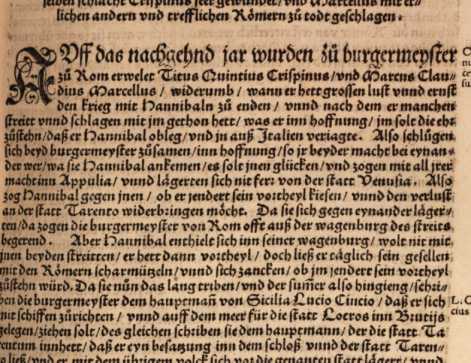 schlacht Crispinus seer gewundet/ vnd Marcellus mit et-
lichen andern vnd trefflichen Römern zu todt geschlagen.
AVff das nachgehnd jar wurden zů burgermeyster
zů Rom erwelet Titus Quintius Crispinus/vnd Marcus Clau-
dius Marcellus/ widerumb/ wann er hett grossen lust vnnd ernst
den krieg mit Hannibaln zů enden/ vnnd nach dem er manchen
streitt vnnd schlagen mit jm gethon hett/ was er inn hoffnung/ jm solt die eh
zůstehn/ daß er Hannibal obleg/ vnd jn auß Italien veriagte. Also schlůgen
sich beyd burgermeyster zůsamen/ inn hoffnung/ so jr beyder macht bei eynan-
der wer/ wa sie Hannibal ankemen/ es solt jnen glücken/ vnd zogen mit all jrer
macht inn Appulia/ vnnd lägerten sich nit ferr von der statt Venusia. Also
zog Hannibal gegen jnen/ ob er jendert sein vortheyl kiesen/ vnnd den verlust
an der statt Tarento widerbringen möcht. Da sie sich gegen eynander läger-
ten/ da zogen die burgermeyster von Rom offt auß der wagenburg des streits
begerend. Aber Hannibal enthielt sich inn seiner wagenburg/ wolt nit mit
jnen beyden streitten/ er hett dann vortheyl/ doch ließ er täglich sein gesellen
mit den Römern scharmützeln/ vnnd sich zancken/ ob jm jendert sein vortheyl
zůstehn würd. Da sie nůn das lang triben/ vnd der summer also hingieng/ schri-
ben die burgermeyster dem hauptman von Sicilia Lucio Cincio/ daß er sich
mit schiffen zůrichten/ vnnd auff dem meer für die statt Locros inn Brutijs
gelegen/ ziehen solt/ des gleichen schriben sie dem hauptmann/ der die statt Ta
rentum innhett/ daß er eyn besatzung inn dem schloß vnnd der statt Taren-
ließ/ vnd er mit dem übrigem volck sich vor die genanten statt lägert/ vnnd
L. C
cius